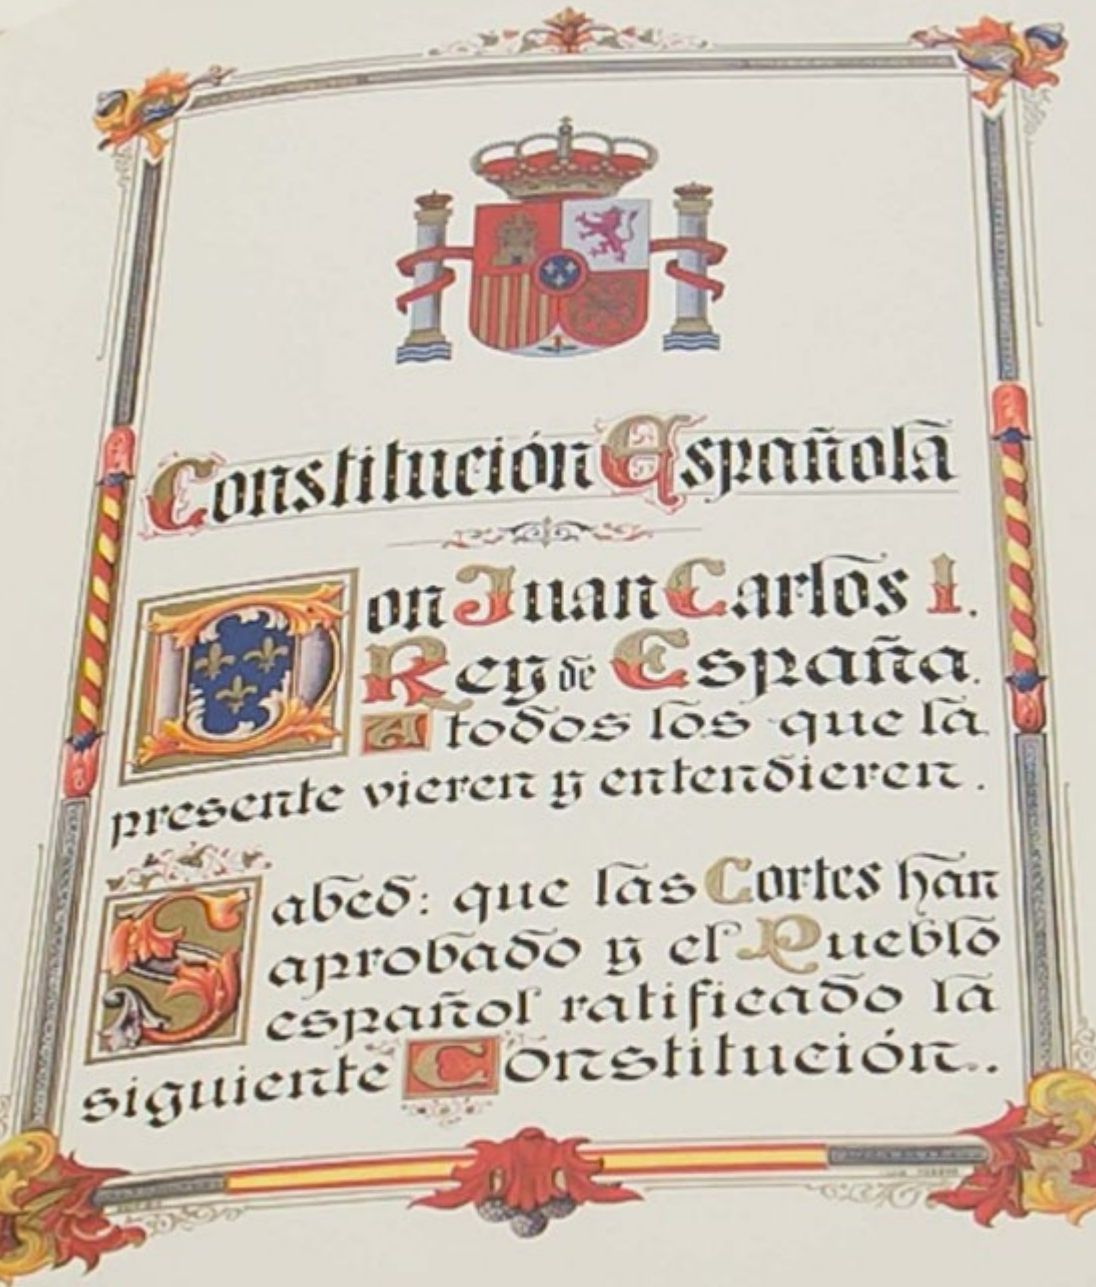 Constitución Española
Don Juan Carlos I.
Rey de España.
A todos los que la
presente vieren y entendieren.
Sabed: que las Cortes han
aprobado y el Pueblo
español ratificado la
siguiente Constitución..